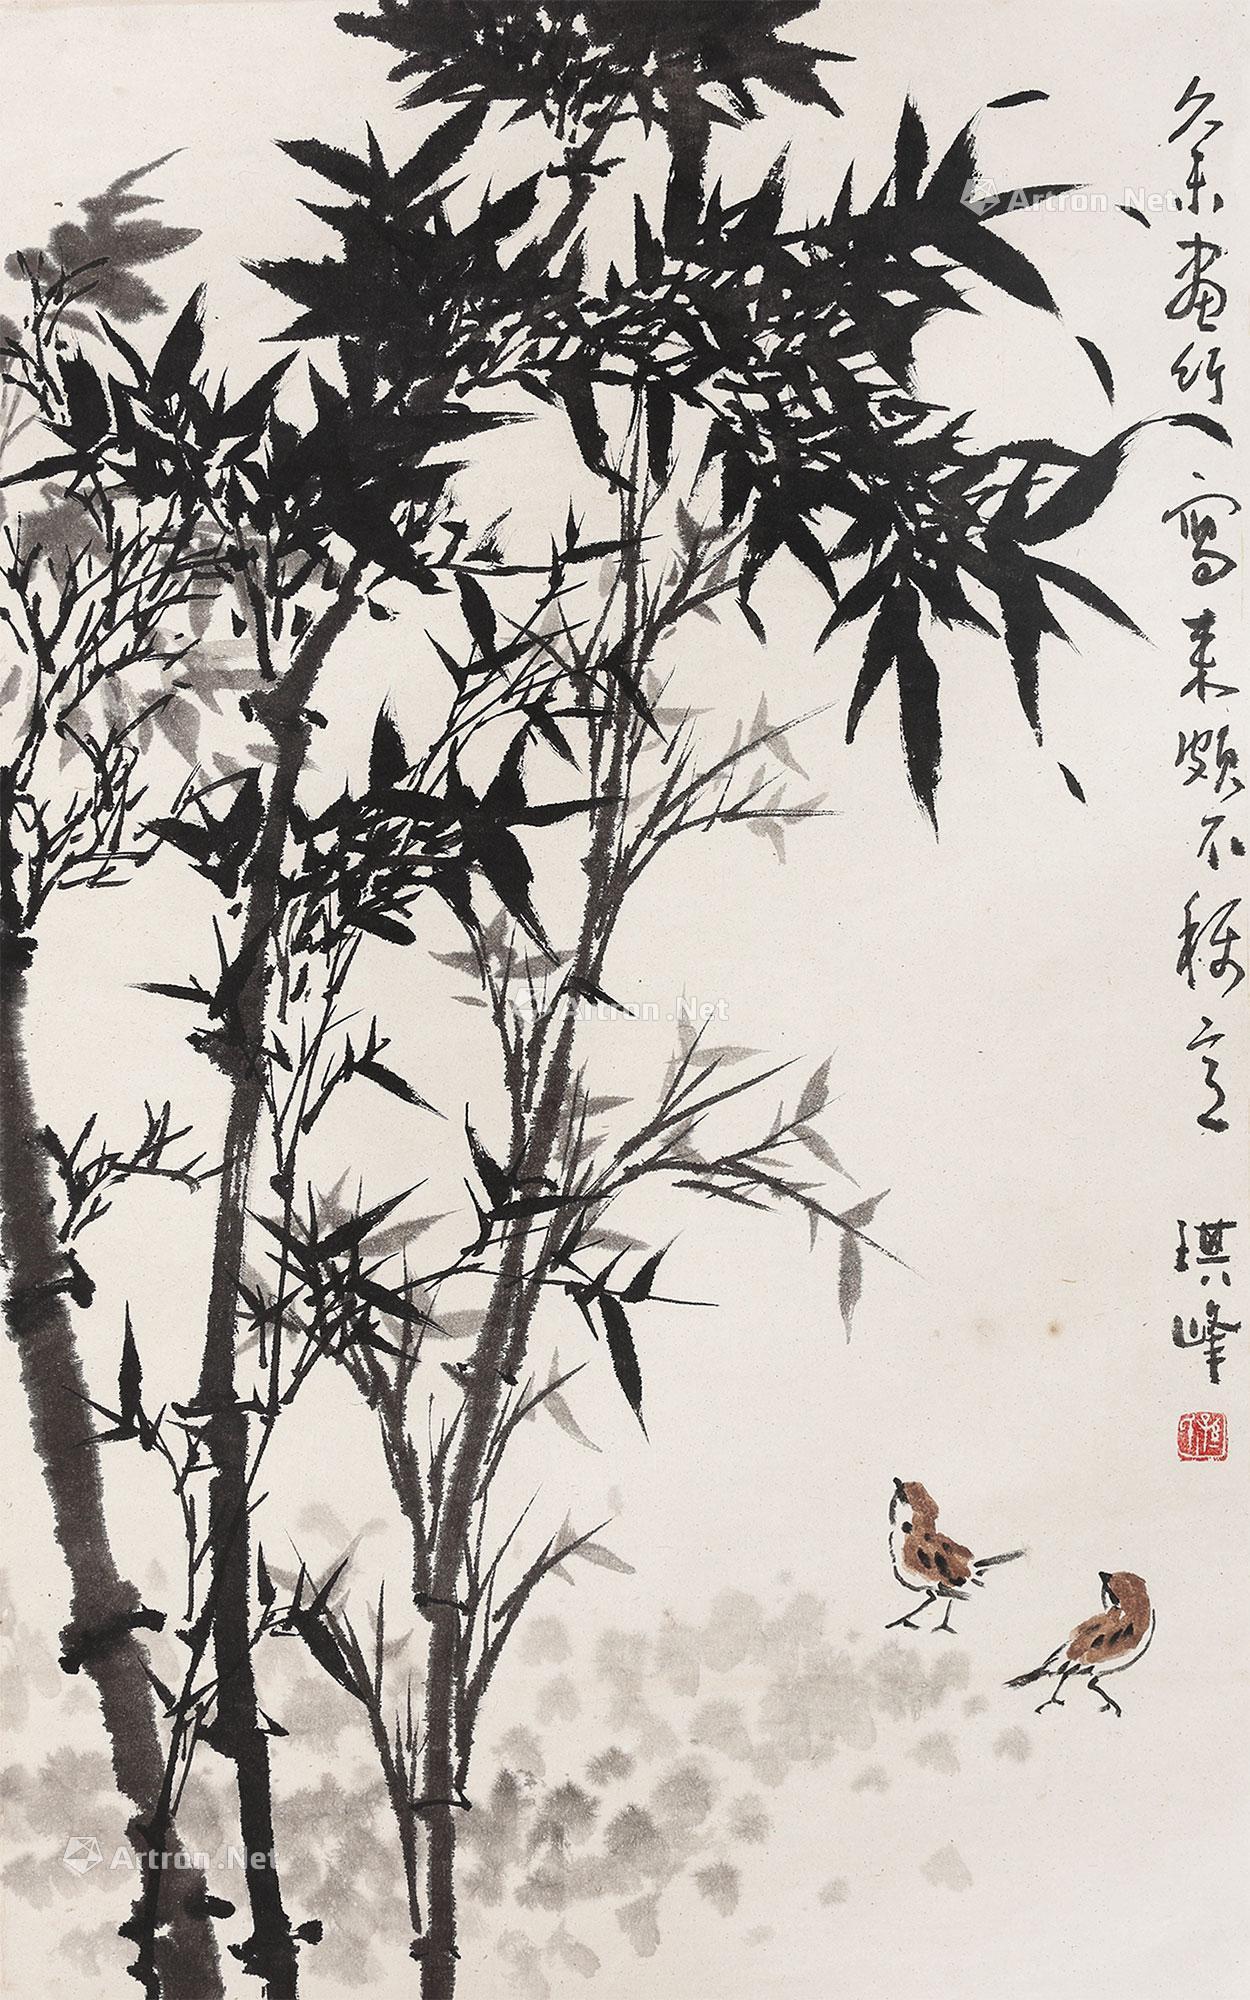 久未画竹写来颇不称意
琪峰
Artron.Net
Artron.Net
Artron.Net